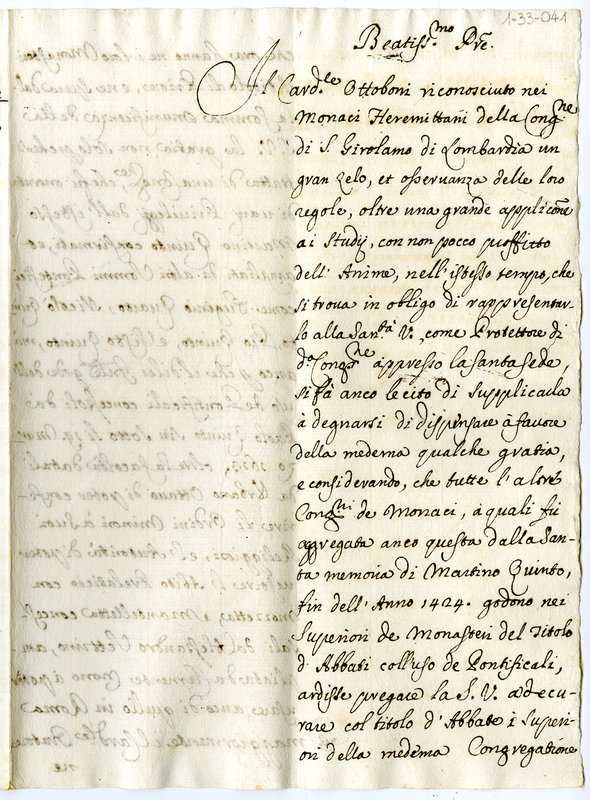 1-33-041
Beatiss.mo Pre.
Il Card.le Ottoboni riconosciuto nei
Monaci Heremittani della Cong.ne
di S. Girolamo di Lombardia un
gran zelo, et osservanza delle loro
regole, oltre una grande applicõne
ai Studij, con non poco proffitto
dell' Anime, nell' istesso tempo, che
si trova in obligo di rappresentar-
lo alla San.tà V., come Protettore di
d.a Cong.ne appresso la santa sede,
si fà anco lecito di supplicarla
à degnarsi di dispensare à favore
della medema qualche gratia,
e considerando, che tutte l'altre
Cong.ni de Monaci, à quali fù
aggregata anco questa dalla San-
ta memoria di Martino Quinto,
fin dell' Anno 1424. godono nei
Superiori de Monasteri del Titolo
d' Abbati coll'uso de Pontificali,
ardisce pregare la S. V. à decu-
rare col titolo d' Abbate i Superi-
ori della medema Congregatione